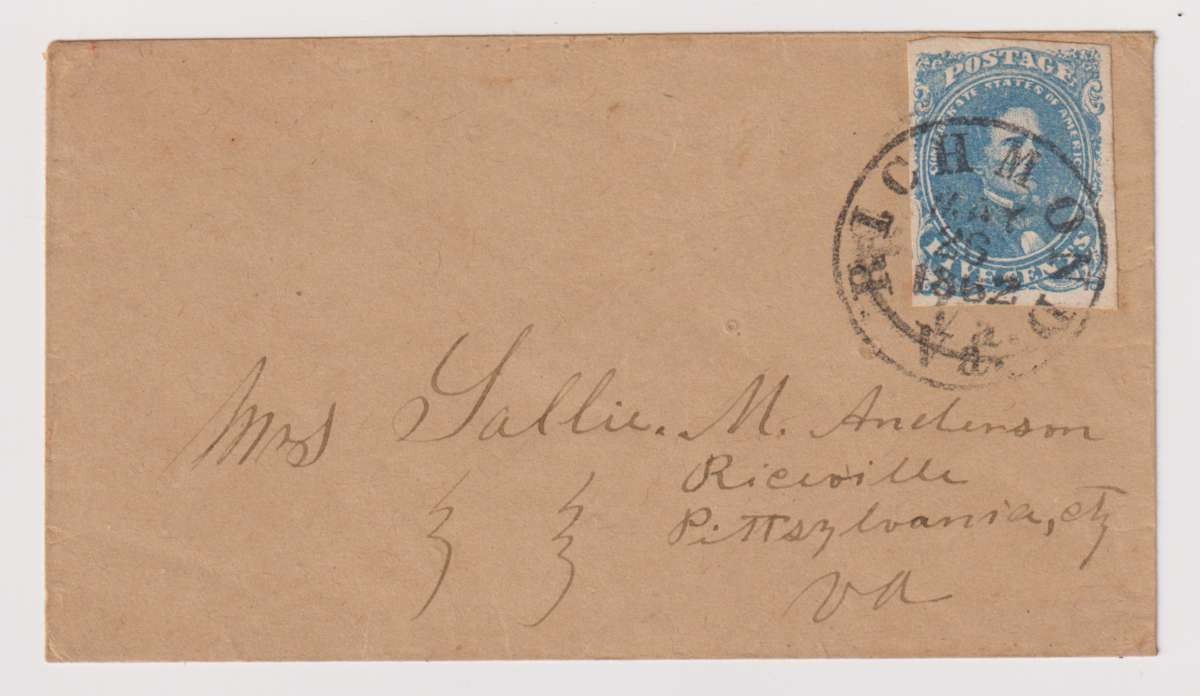 POSTAGE
CONFEDERATE STATES OF AMERICA
FIVE CENTS
RICHMOND
MAY
26
1862
Va.
Mrs Sallie. M. Anderson
Riceville
Pittsylvania, cty
Va